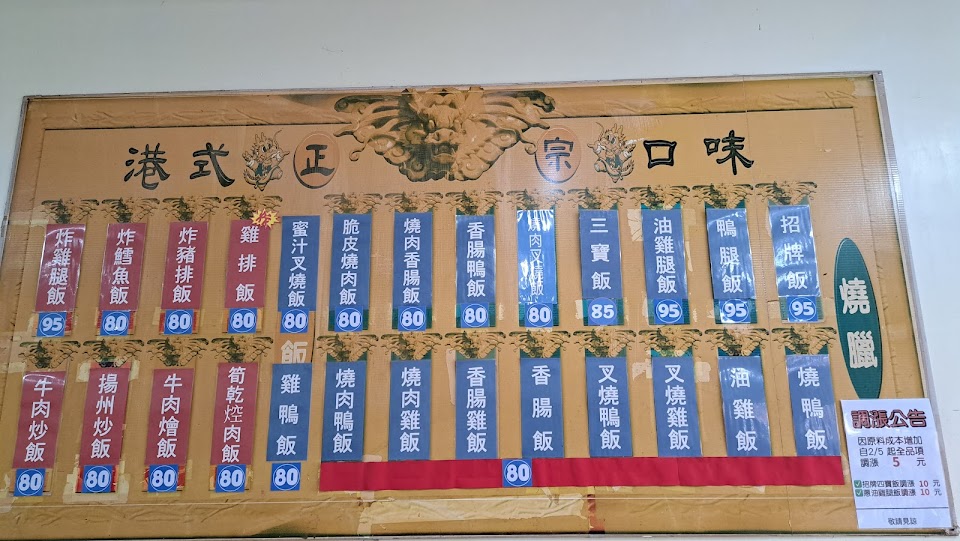 港式正宗口味
燒臘
招牌飯 95
鴨腿飯 95
油雞腿飯 95
三寶飯 85
燒肉叉燒飯 80
香腸鴨飯 80
燒肉香腸飯 80
脆皮燒肉飯 80
蜜汁叉燒飯 80
炸雞排飯 80
炸豬排飯 80
炸鱈魚飯 80
炸雞腿飯 95
燒鴨飯
油雞飯
叉燒雞飯
叉燒鴨飯
香腸飯
香腸雞飯
燒肉雞飯
燒肉鴨飯
80
飯
雞鴨飯 80
筍乾焢肉飯 80
牛肉燴飯 80
揚州炒飯 80
牛肉炒飯 80
調漲公告
因原料成本增加
自2/5 起全品項
調漲 5 元
招牌四寶飯調漲 10 元
蔥油雞腿飯調漲 10 元
敬請見諒